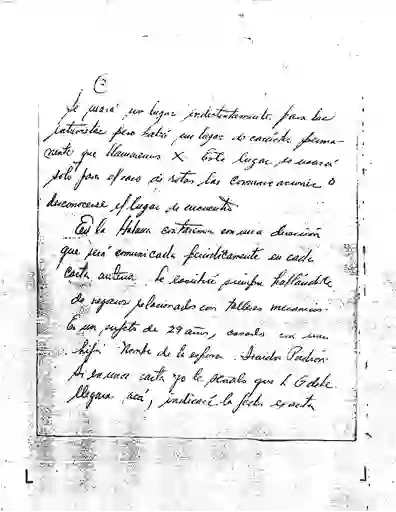 Se usará un lugar indistintamente para las
entrevistas pero habrá un lugar de carácter perma-
nente que llamaremos X. Este lugar se usará
solo para el caso de rotas las comunicaciones o
desconocerse el lugar de encuentro.
En la Habana contaremos con una dirección
que será comunicada periódicamente en cada
carta anterior. Se escribirá siempre hablándole
de negocios relacionados con talleres mecánicos.
Es un sujeto de 29 años, casado con una
hija. Nombre de la esposa: Padrón.
Si en una carta yo le señalo que debe
llegar acá, indicaré la fecha exacta